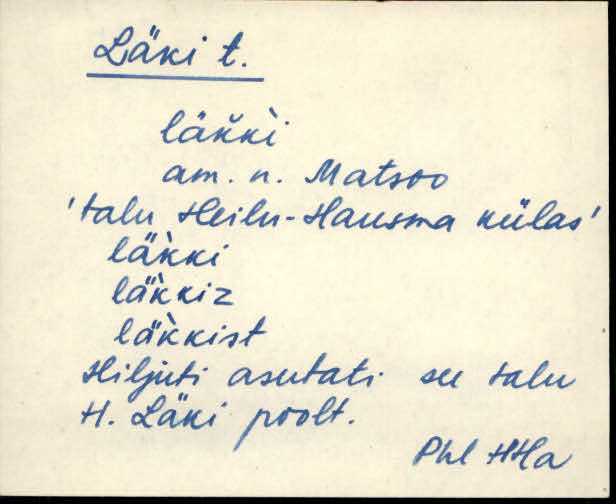 Läki t.
läk̆kì
am. n. Matsoo
'talu Heilu-Hausma külas'
läk̀ki
läk̀kiz
läk̀kist
Hiljuti asutati see talu
H. Läki poolt.
Phl HHa